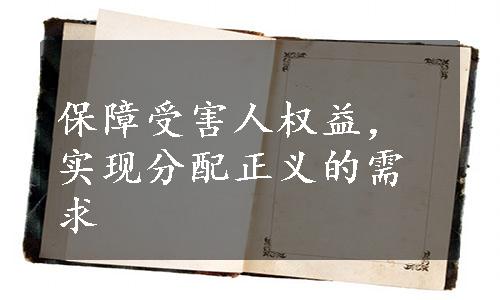 保障受害人权益，
实现分配正义的需
求